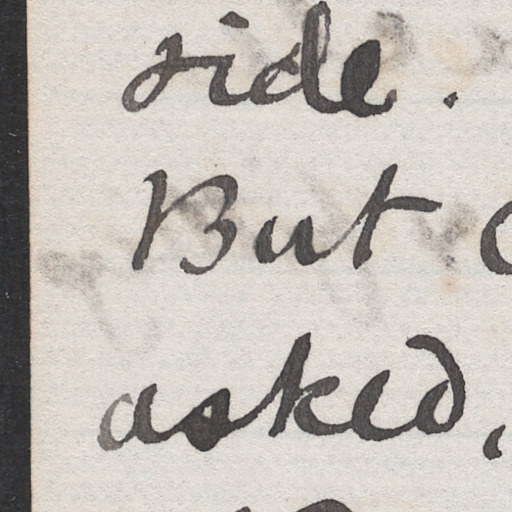 side.
But
asked,